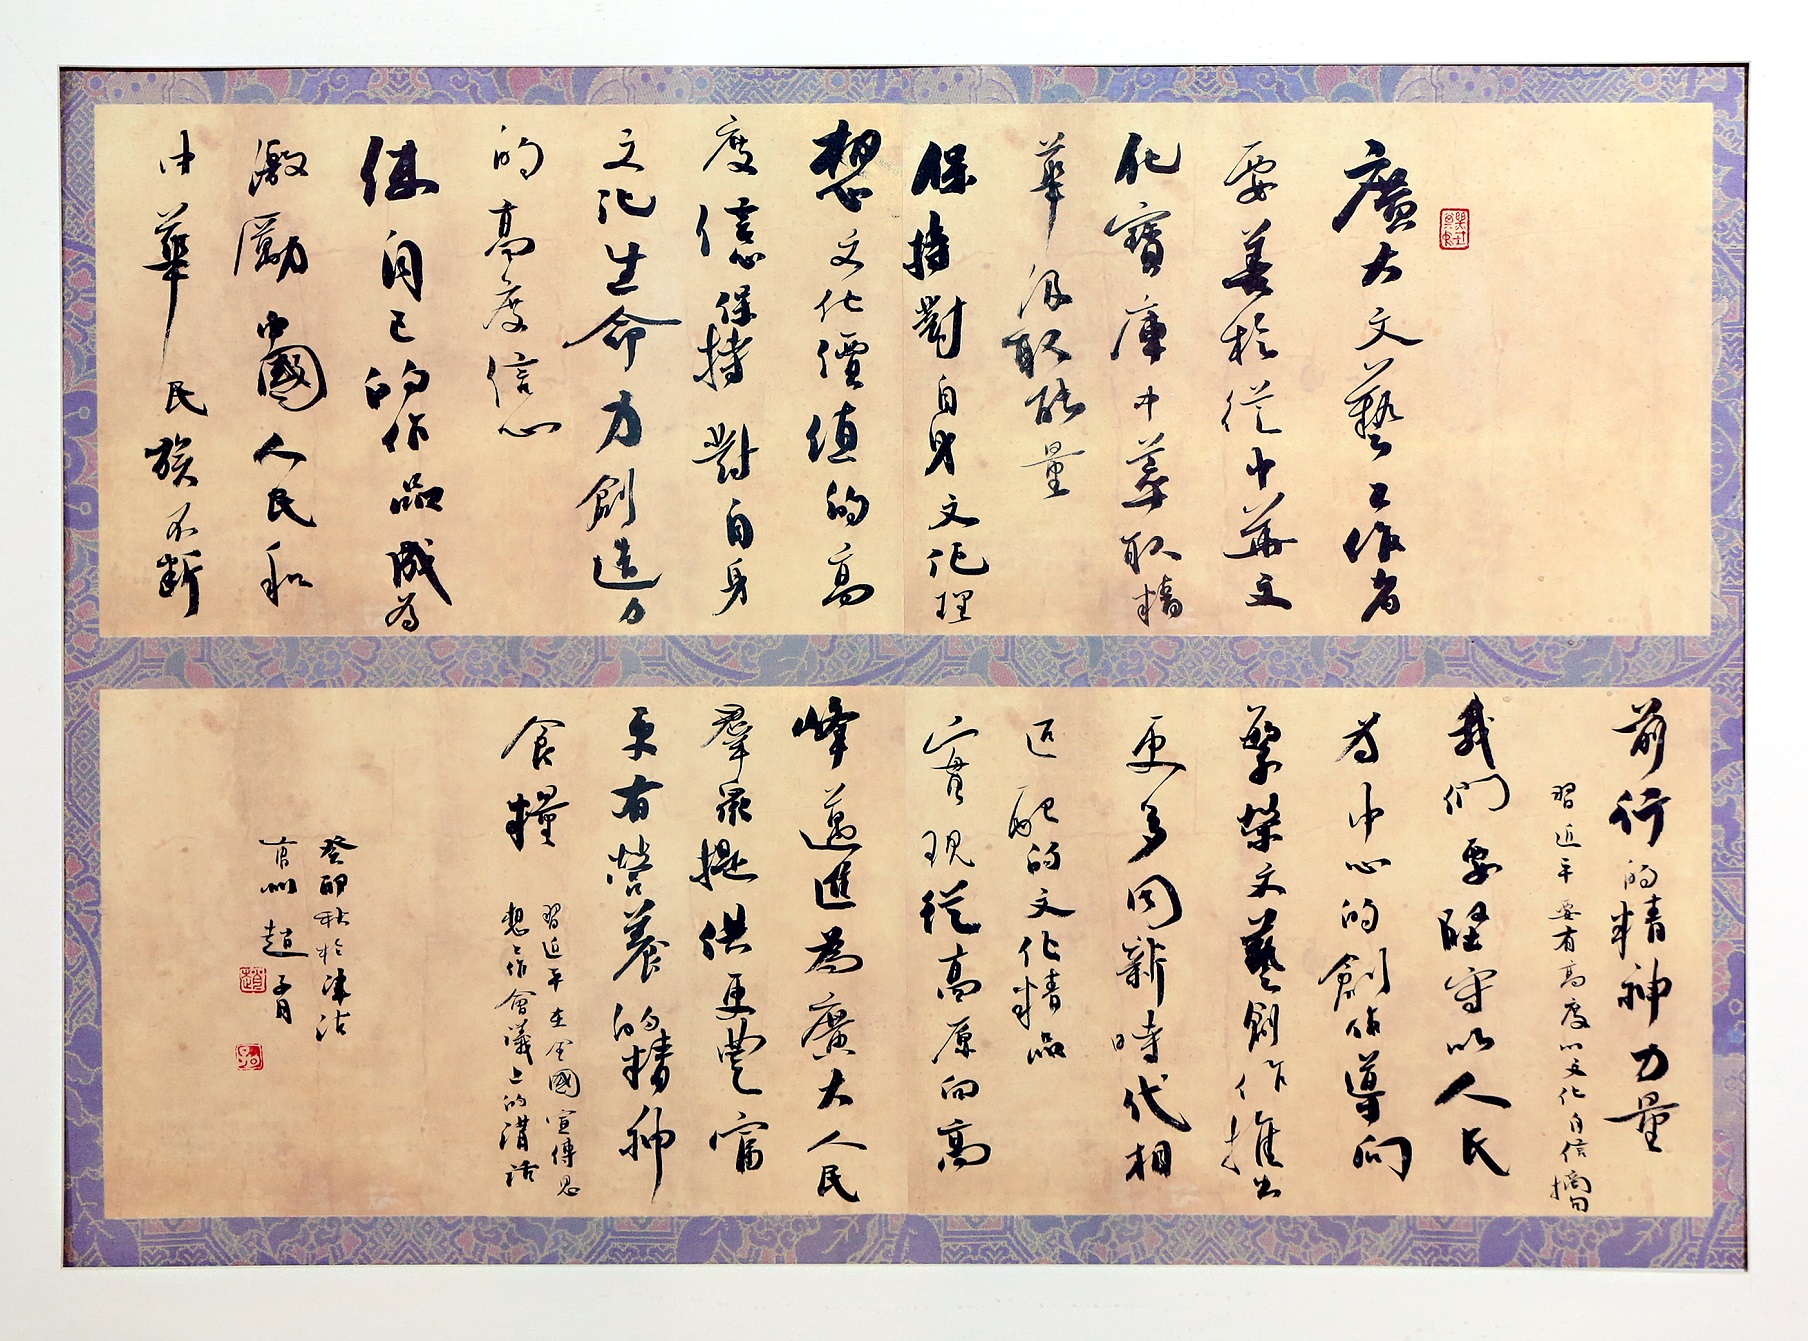 廣大文藝工作者
要善於從中華文
化寶庫中萃取精
華汲取能量
保持對自身文化理
想文化價值的高
度信心保持對自身
文化生命力創造力
的高度信心
使自己的作品成為
激勵中國人民和
中華民族不斷
前行的精神力量
習近平要有高度的文化自信摘句
我們要堅守以人民
為中心的創作導向
繁榮文藝創作推出
更多同新時代相
匹配的文化精品
實現從高原向高
峰邁進為廣大人民
羣眾提供更豐富
更有營養的精神
食糧
習近平在全國宣傳思
想工作會議上的講話
癸卯秋於津沽
趙